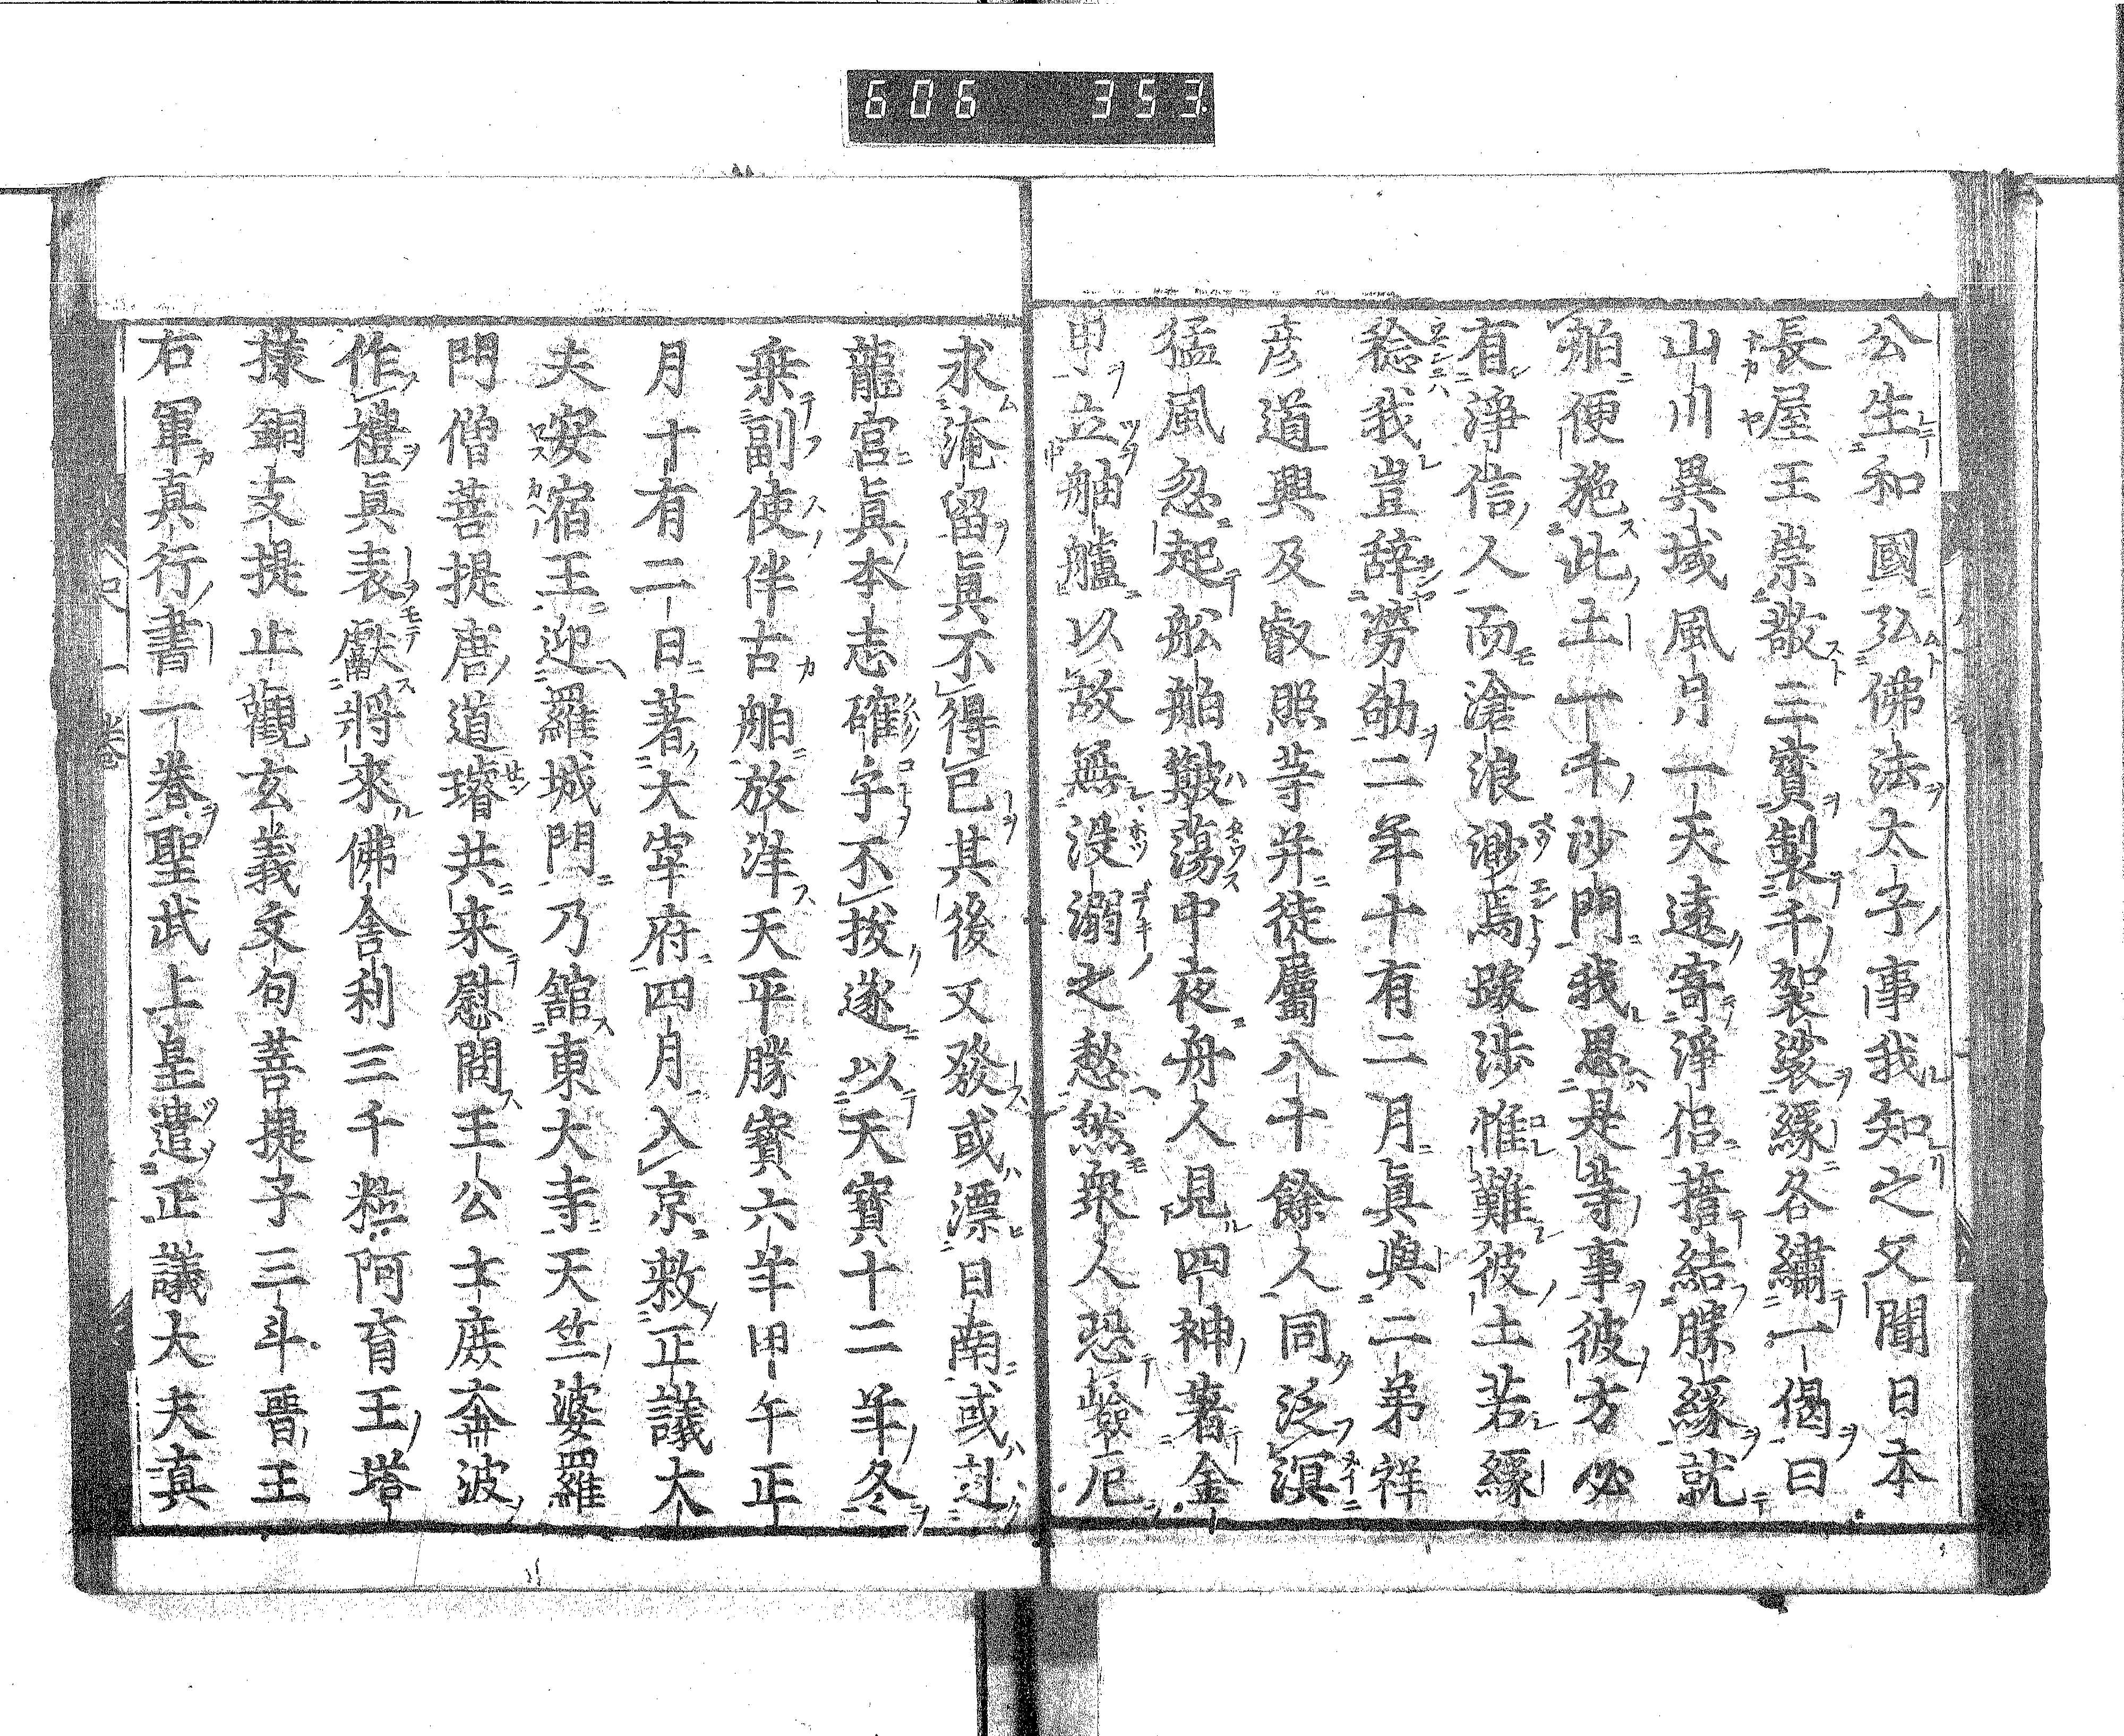 606 353
公生和國弘佛法太子事我知之又聞日本
長屋王崇敬三寶製千袈裟縁各繡一偈曰
山川異域風月一天遠寄淨侶搢結勝縁就
舶便施此土一千沙門我思是等事彼方必
有淨信人而滄浪渺焉跋涉惟難彼土若縁
稔我豈辞勞劬二年十有二月眞與二弟祥
彦道興及叡照等并徒屬八十餘人同泛溟
猛風忽起舩舶簸蕩中夜舟人見四神著金
甲立舳艫以故無没溺之愁然衆人恐嶮厄
求淹留眞不得已其後又發或漂日南或
龍宮眞本志確乎不拔遂以天寶十二年冬
乗副使伴古舶放洋天平勝寶六年甲午正
月十有二日著大宰府四月入京敕正議大
夫安宿王迎羅城門乃舘東大寺天竺婆羅
門僧菩提唐道璿共来慰問王公士庶奔波
作禮眞表獻將來佛舎利三千粒阿育王塔
樣銅支提止觀玄義文句菩提子三斗晉王
右軍真行書一卷聖武上皇遣正議大夫真